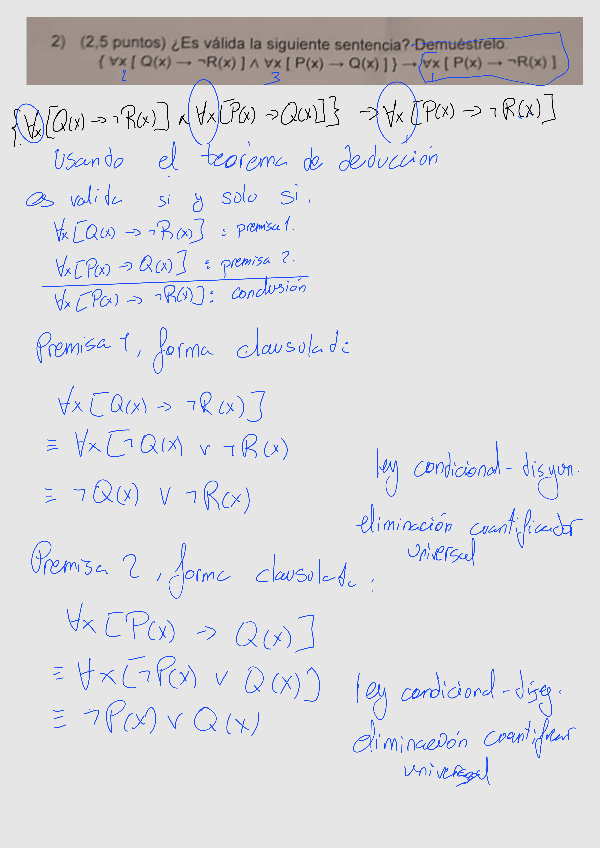 2) (2,5 puntos) ¿Es válida la siguiente sentencia? Demuéstrelo.
{ ∀x [ Q(x) → ¬R(x) ] ∧ ∀x [ P(x) → Q(x) ] } → ∀x [ P(x) → ¬R(x) ]
2 3 1
{∀x [Q(x) → ¬R(x)] ∧ ∀x [P(x) → Q(x)]} → ∀x [P(x) → ¬R(x)]
Usando el teorema de deducción
es valida si y solo si.
∀x [Q(x) → ¬R(x)] : premisa 1.
∀x [P(x) → Q(x)] : premisa 2.
∀x [P(x) → ¬R(x)] : conclusión
Premisa 1, forma clausulada:
∀x [Q(x) → ¬R(x)]
≡ ∀x [¬Q(x) ∨ ¬R(x)
ley condicional-disyun.
≡ ¬Q(x) ∨ ¬R(x)
eliminación cuantificador
universal
Premisa 2, forma clausulada:
∀x [P(x) → Q(x)]
≡ ∀x [¬P(x) ∨ Q(x)]
ley condicional-
≡ ¬P(x) ∨ Q(x)
eliminación
universal